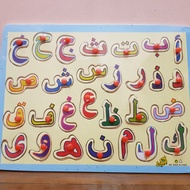 أ ب ت ث ج ح خ
د ذ ر ز س ش ص
ض ط ظ ع غ ف ق
ك ل م ن ه و ي